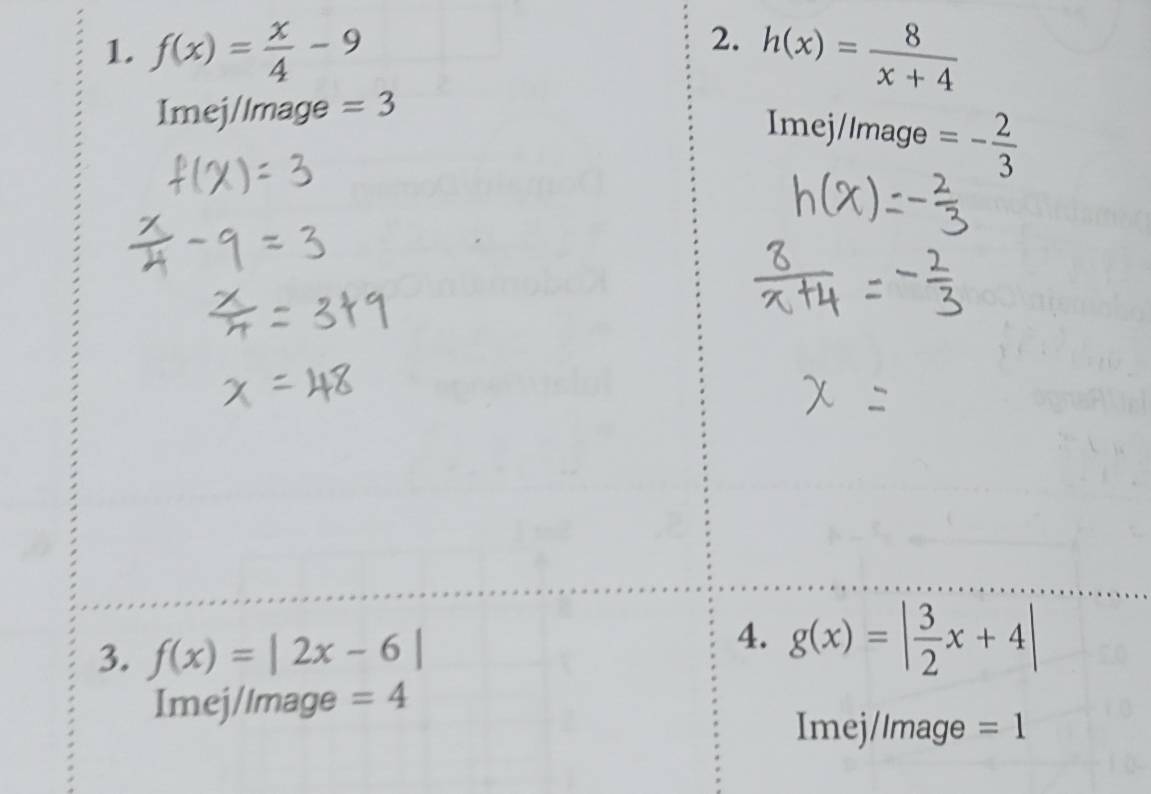 1. f(x) = x/4 − 9
Imej/Image = 3
f(x) = 3
x/4 − 9 = 3
x/4 = 3+9
x = 48
2. h(x) = 8/(x + 4)
Imej/Image = −2/3
h(x) = −2/3
8/(x+4) = −2/3
x =
3. f(x) = | 2x − 6 |
Imej/Image = 4
4. g(x) = |3/2 x + 4|
Imej/Image = 1